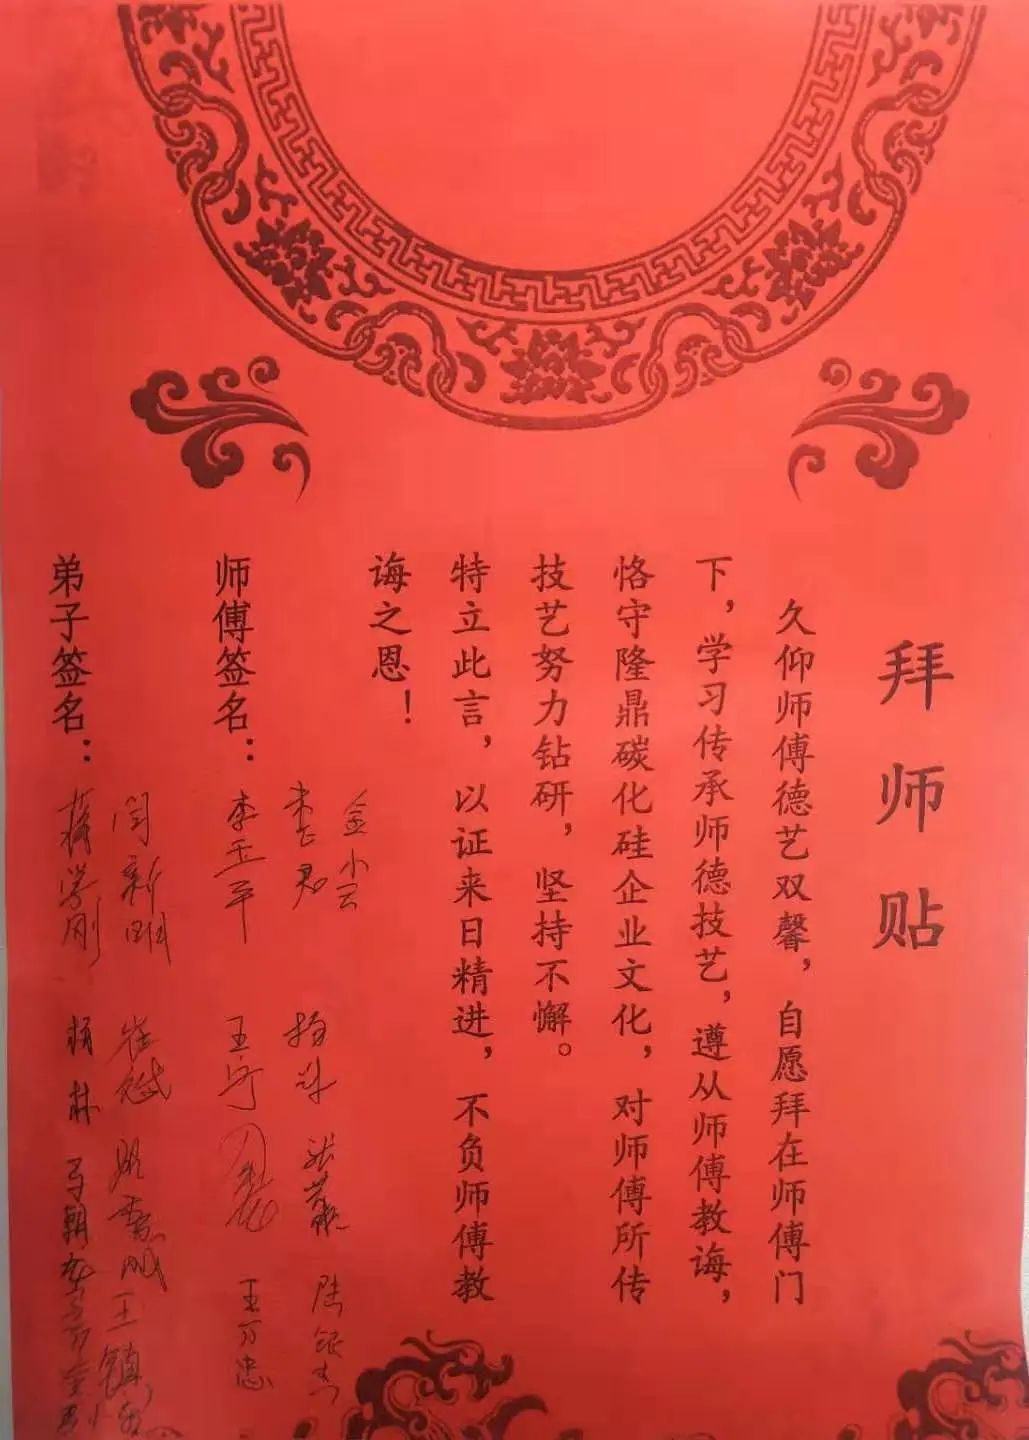 拜师贴
久仰师傅德艺双馨，自愿拜在师傅门
下，学习传承师德技艺，遵从师傅教诲，
恪守隆鼎碳化硅企业文化，对师傅所传
技艺努力钻研，坚持不懈。
特立此言，以证来日精进，不负师傅教
诲之恩！
金小云
师傅签名：李玉平 王宁 王万忠
弟子签名：蒋学刚 杨林